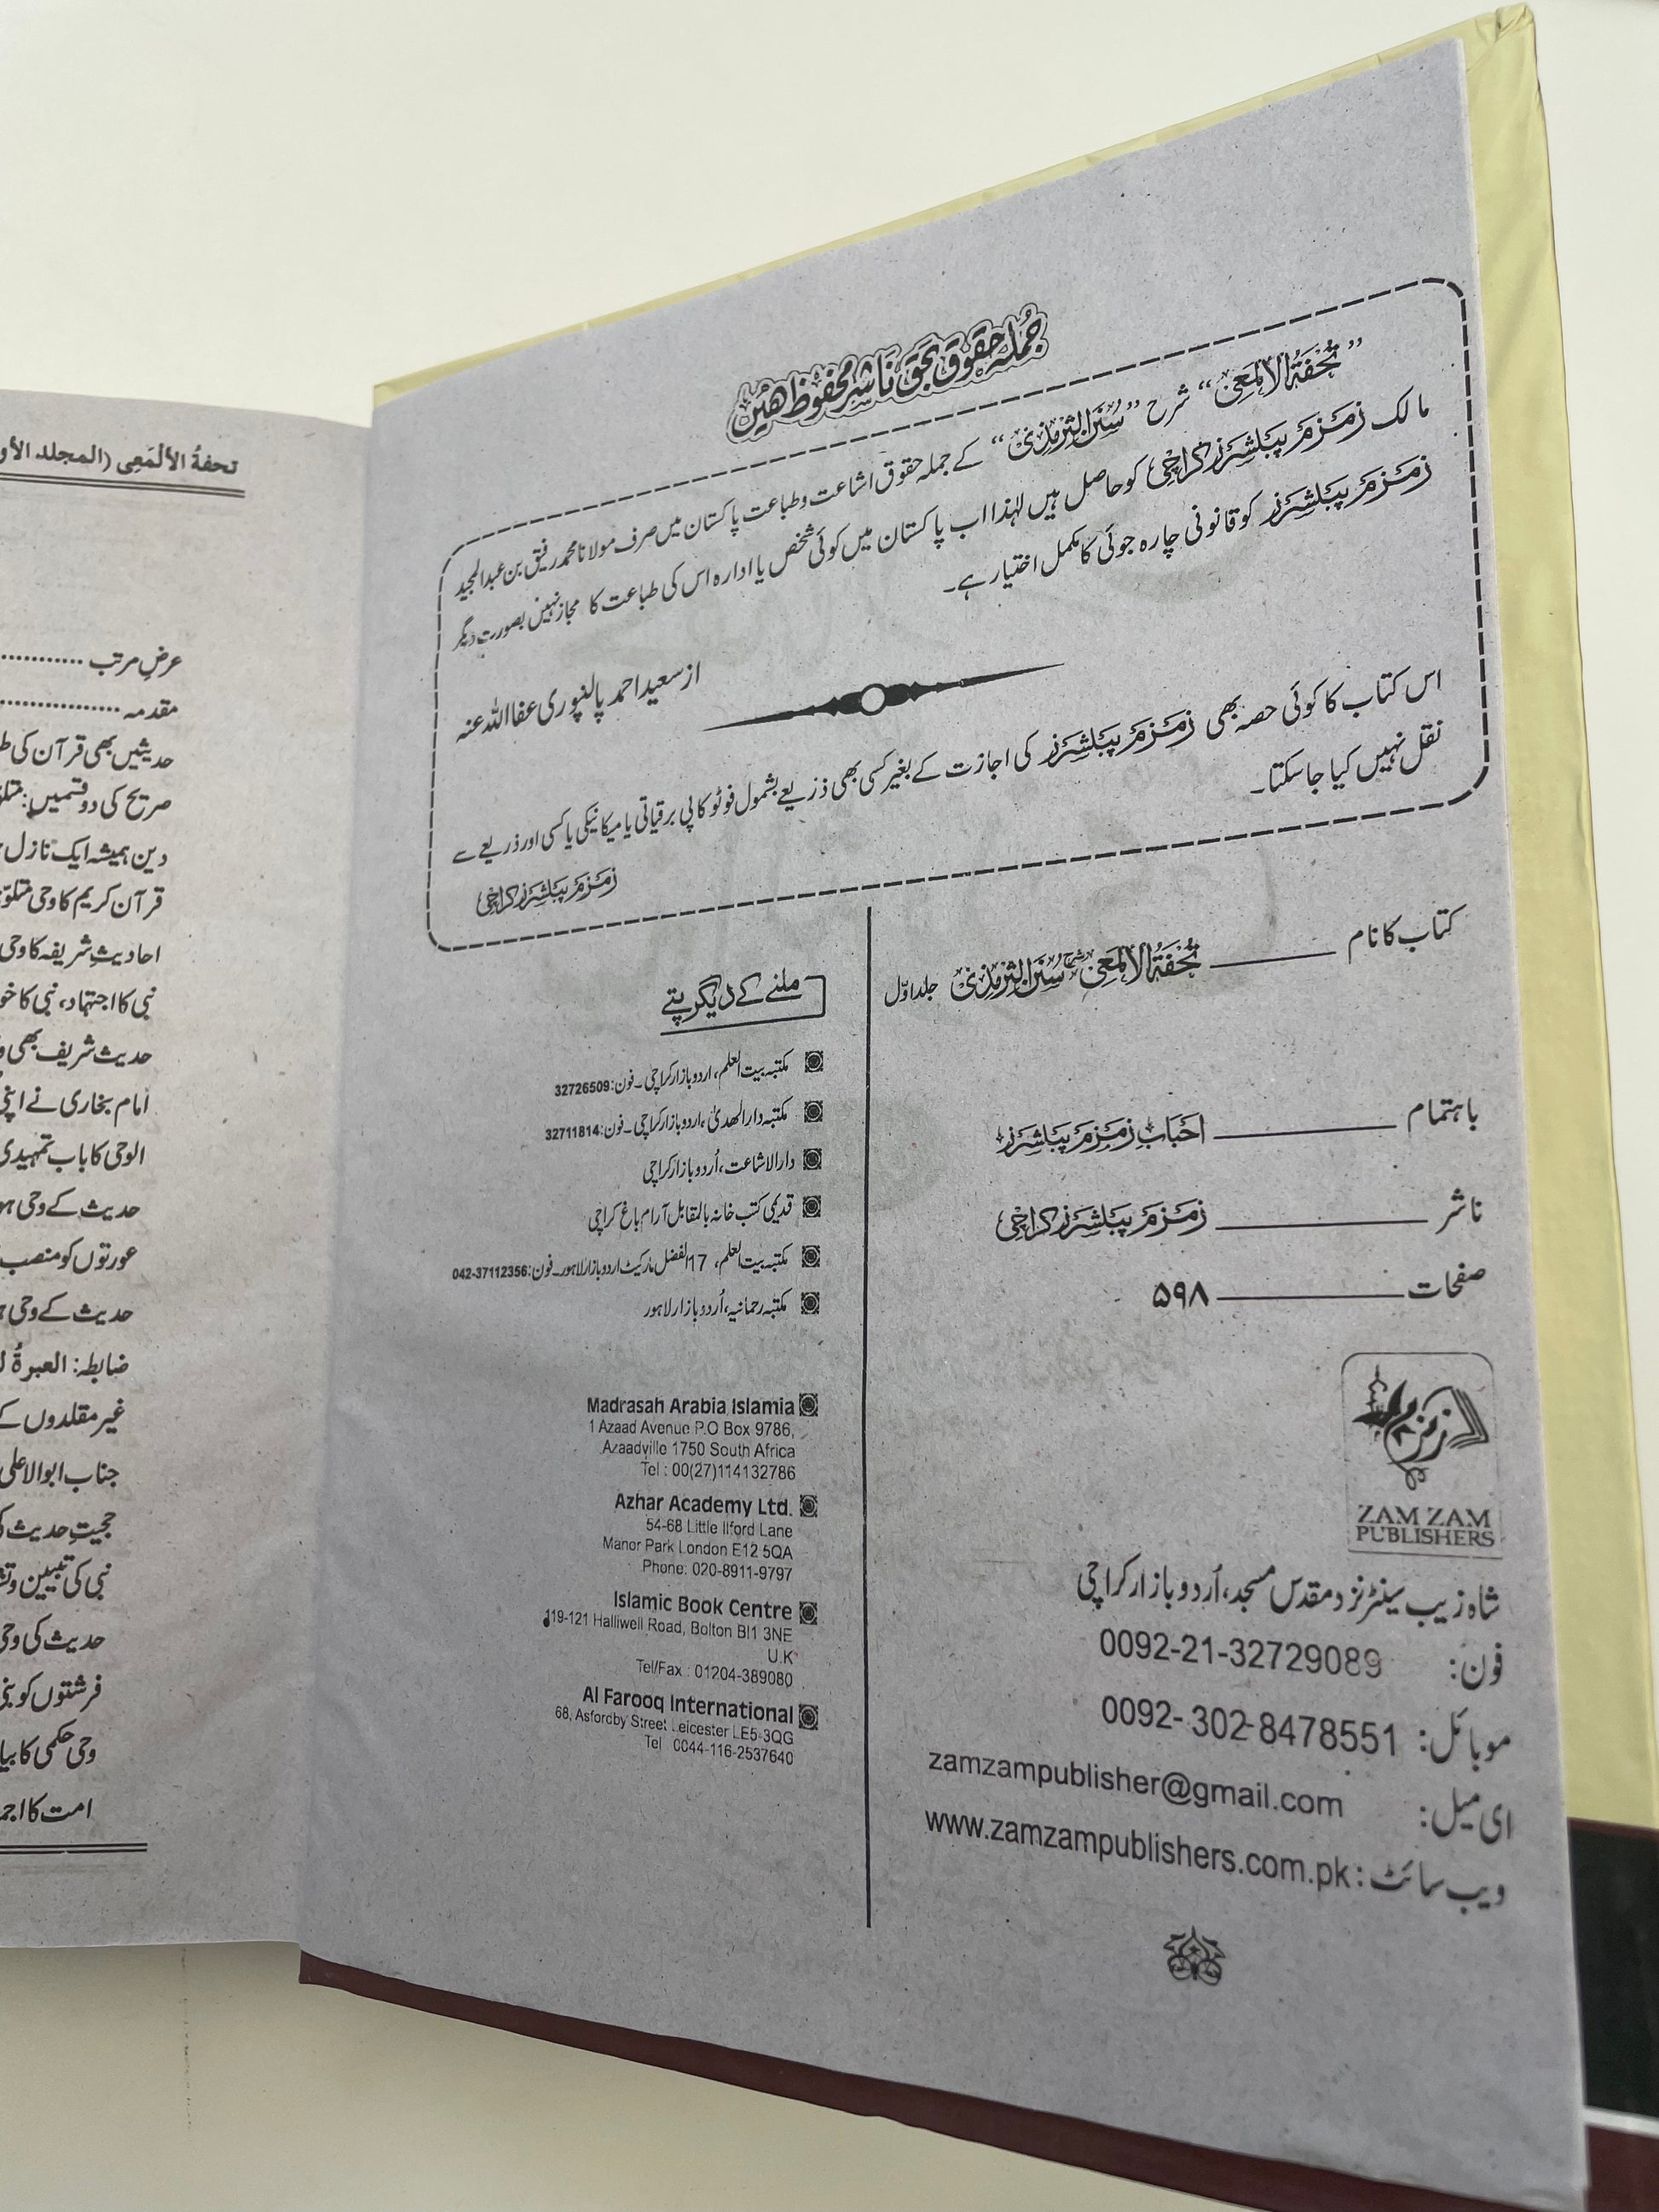 جُملہ حقوق بحق ناشر محفوظ ھیں
”تُحفَۃُ الالمَعِی“ شرح ”سُنَنُ الترمذی“ کے جملہ حقوق اشاعت و طباعت پاکستان میں صرف مولانا محمد رفیق بن عبدالمجید
مالک زمزم پبلشرز کراچی کو حاصل ہیں لہٰذا اب پاکستان میں کوئی شخص یا ادارہ اس کی طباعت کا مجاز نہیں بصورت دیگر
زمزم پبلشرز کو قانونی چارہ جوئی کا مکمل اختیار ہے۔
از سعید احمد پالنپوری عفا اللہ عنہ
اس کتاب کا کوئی حصہ بھی زمزم پبلشرز کی اجازت کے بغیر کسی بھی ذریعے بشمول فوٹو کاپی برقیاتی یا میکانیکی یا کسی اور ذریعے سے
نقل نہیں کیا جا سکتا۔
زمزم پبلشرز کراچی
کتاب کا نام ــــــ تُحفَۃُ الالمَعِی شرح سُنَنُ الترمذی جلد اوّل
باہتمام ــــــ احباب زمزم پبلشرز
ناشر ــــــ زمزم پبلشرز کراچی
صفحات ــــــ ۵۹۸
زمزم
ZAM ZAM
PUBLISHERS
شاہ زیب سینٹر نزد مقدس مسجد، اُردو بازار کراچی
فون: 0092-21-32729089
موبائل: 0092-302-8478551
ای میل: zamzampublisher@gmail.com
ویب سائٹ: www.zamzampublishers.com.pk
ملنے کے دیگر پتے
مکتبہ بیت العلم، اردو بازار کراچی۔ فون: 32726509
مکتبہ دارالھدیٰ، اردو بازار کراچی۔ فون: 32711814
دارالاشاعت، اُردو بازار کراچی
قدیمی کتب خانہ بالمقابل آرام باغ کراچی
مکتبہ بیت العلم، 17 الفضل مارکیٹ اردو بازار لاہور۔ فون: 042-37112356
مکتبہ رحمانیہ، اُردو بازار لاہور
Madrasah Arabia Islamia
1 Azaad Avenue P.O Box 9786,
Azaadville 1750 South Africa
Tel : 00(27)114132786
Azhar Academy Ltd.
54-68 Little Ilford Lane
Manor Park London E12 5QA
Phone: 020-8911-9797
Islamic Book Centre
119-121 Halliwell Road, Bolton Bl1 3NE
U.K
Tel/Fax : 01204-389080
Al Farooq International
68, Asfordby Street Leicester LE5-3QG
Tel 0044-116-2537640
تحفۃُ الألمَعِی (المجلد الأو
عرضِ مرتب ............
مقدمہ ............
حدیثیں بھی قرآن کی
صریح کی دو قسمیں:
دین ہمیشہ ایک نازل
قرآن کریم کا وحی متلو
احادیثِ شریفہ کا وحی
نبی کا اجتہاد، نبی کا
حدیث شریف بھی
امام بخاری نے اپنی
الوحی کا باب تمہیدی
حدیث کے وحی
عورتوں کو منصب
حدیث کے وحی
ضابطہ: العبرةُ
غیر مقلدوں کے
جناب ابو الاعلی
حجیتِ حدیث
نبی کی تبیین و
حدیث کی وحی
فرشتوں کو
وحی حکمی کا
امت کا